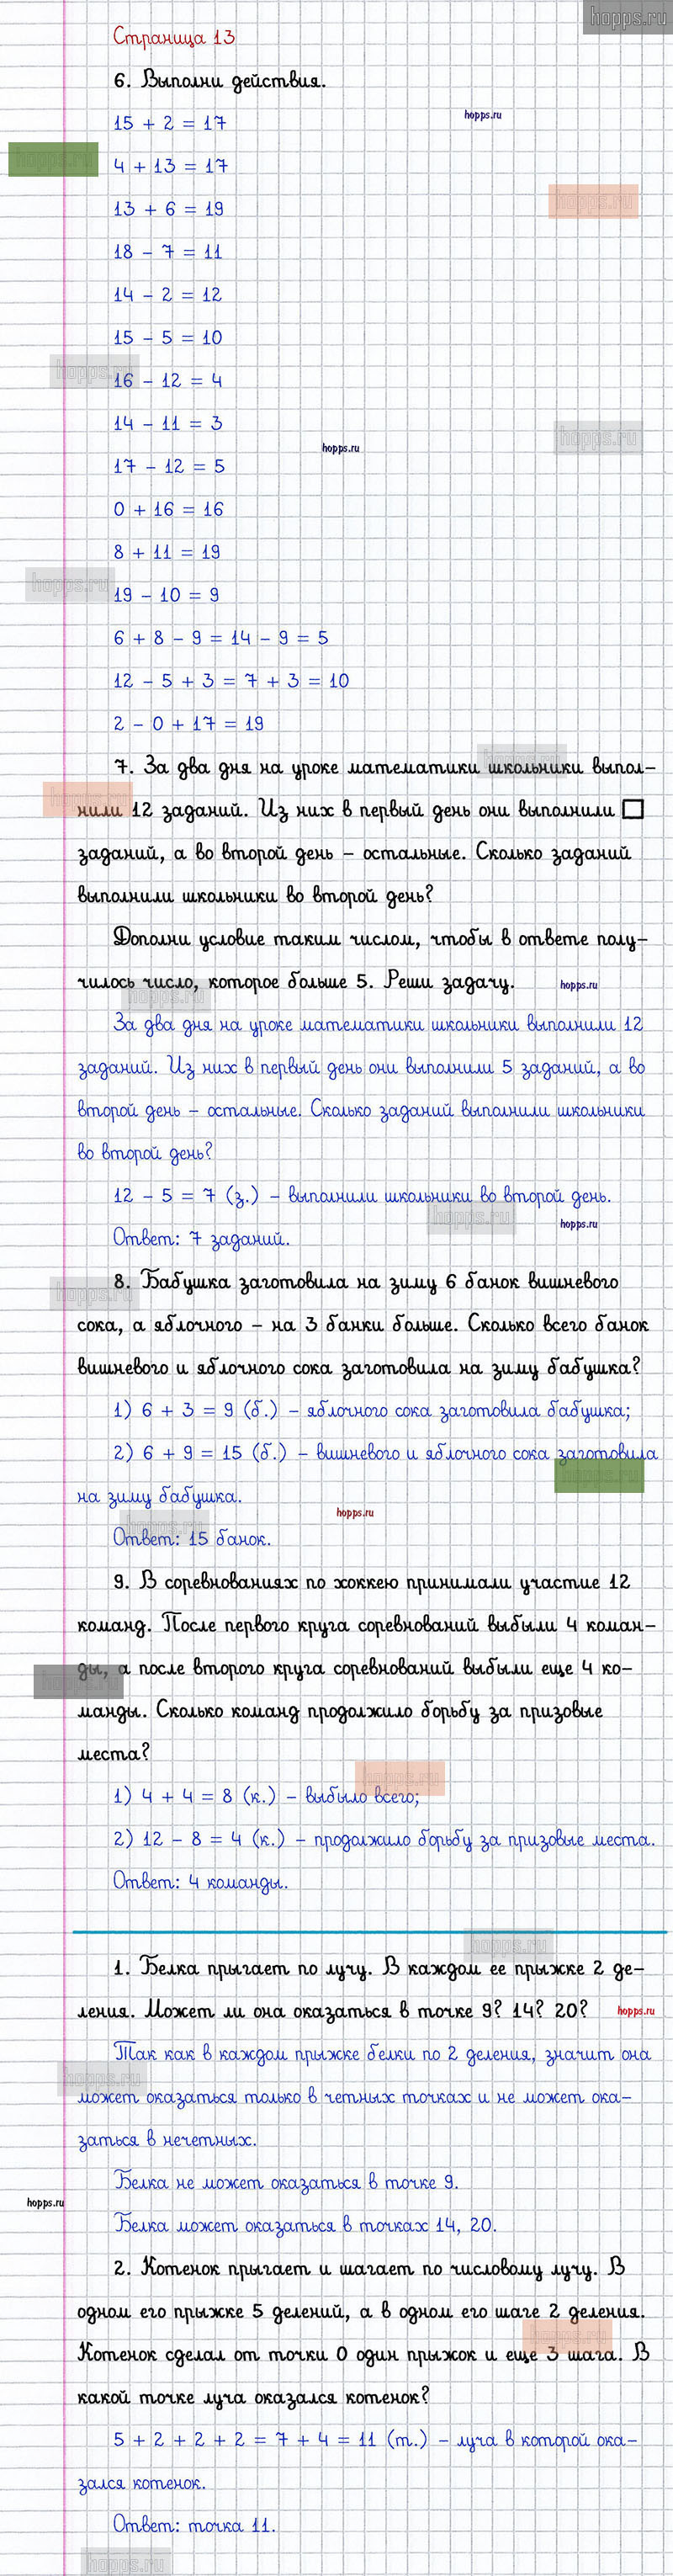 hopps.ru
Страница 13
6. Выполни действия.
hopps.ru
15 + 2 = 17
hopps.ru
4 + 13 = 17
hopps.ru
13 + 6 = 19
18 - 7 = 11
14 - 2 = 12
15 - 5 = 10
hopps.ru
16 - 12 = 4
14 - 11 = 3
hopps.ru
hopps.ru
17 - 12 = 5
0 + 16 = 16
8 + 11 = 19
hopps.ru
19 - 10 = 9
6 + 8 - 9 = 14 - 9 = 5
12 - 5 + 3 = 7 + 3 = 10
2 - 0 + 17 = 19
hopps.ru
7. За два дня на уроке математики школьники выпол-
hopps.ru
нили 12 заданий. Из них в первый день они выполнили □
заданий, а во второй день - остальные. Сколько заданий
выполнили школьники во второй день?
Дополни условие таким числом, чтобы в ответе полу-
чилось число, которое больше 5. Реши задачу.
hopps.ru
hopps.ru
За два дня на уроке математики школьники выполнили 12
заданий. Из них в первый день они выполнили 5 заданий, а во
второй день - остальные. Сколько заданий выполнили школьники
во второй день?
12 - 5 = 7 (з.) - выполнили школьники во второй день.
hopps.ru
hopps.ru
Ответ: 7 заданий.
8. Бабушка заготовила на зиму 6 банок вишневого
hopps.ru
сока, а яблочного - на 3 банки больше. Сколько всего банок
вишневого и яблочного сока заготовила на зиму бабушка?
1) 6 + 3 = 9 (б.) - яблочного сока заготовила бабушка;
2) 6 + 9 = 15 (б.) - вишневого и яблочного сока заготовила
hopps.ru
на зиму бабушка.
hopps.ru
hopps.ru
Ответ: 15 банок.
9. В соревнованиях по хоккею принимали участие 12
команд. После первого круга соревнований выбыли 4 коман-
ды, а после второго круга соревнований выбыли еще 4 ко-
hopps.ru
манды. Сколько команд продолжило борьбу за призовые
места?
hopps.ru
1) 4 + 4 = 8 (к.) - выбыло всего;
2) 12 - 8 = 4 (к.) - продолжило борьбу за призовые места.
Ответ: 4 команды.
hopps.ru
1. Белка прыгает по лучу. В каждом ее прыжке 2 де-
ления. Может ли она оказаться в точке 9? 14? 20?
hopps.ru
Так как в каждом прыжке белки по 2 деления, значит она
hopps.ru
может оказаться только в четных точках и не может ока-
заться в нечетных.
Белка не может оказаться в точке 9.
hopps.ru
Белка может оказаться в точках 14, 20.
2. Котенок прыгает и шагает по числовому лучу. В
одном его прыжке 5 делений, а в одном его шаге 2 деления.
hopps.ru
Котенок сделал от точки 0 один прыжок и еще 3 шага. В
какой точке луча оказался котенок?
5 + 2 + 2 + 2 = 7 + 4 = 11 (т.) - луча в которой ока-
зался котенок.
Ответ: точка 11.
hopps.ru